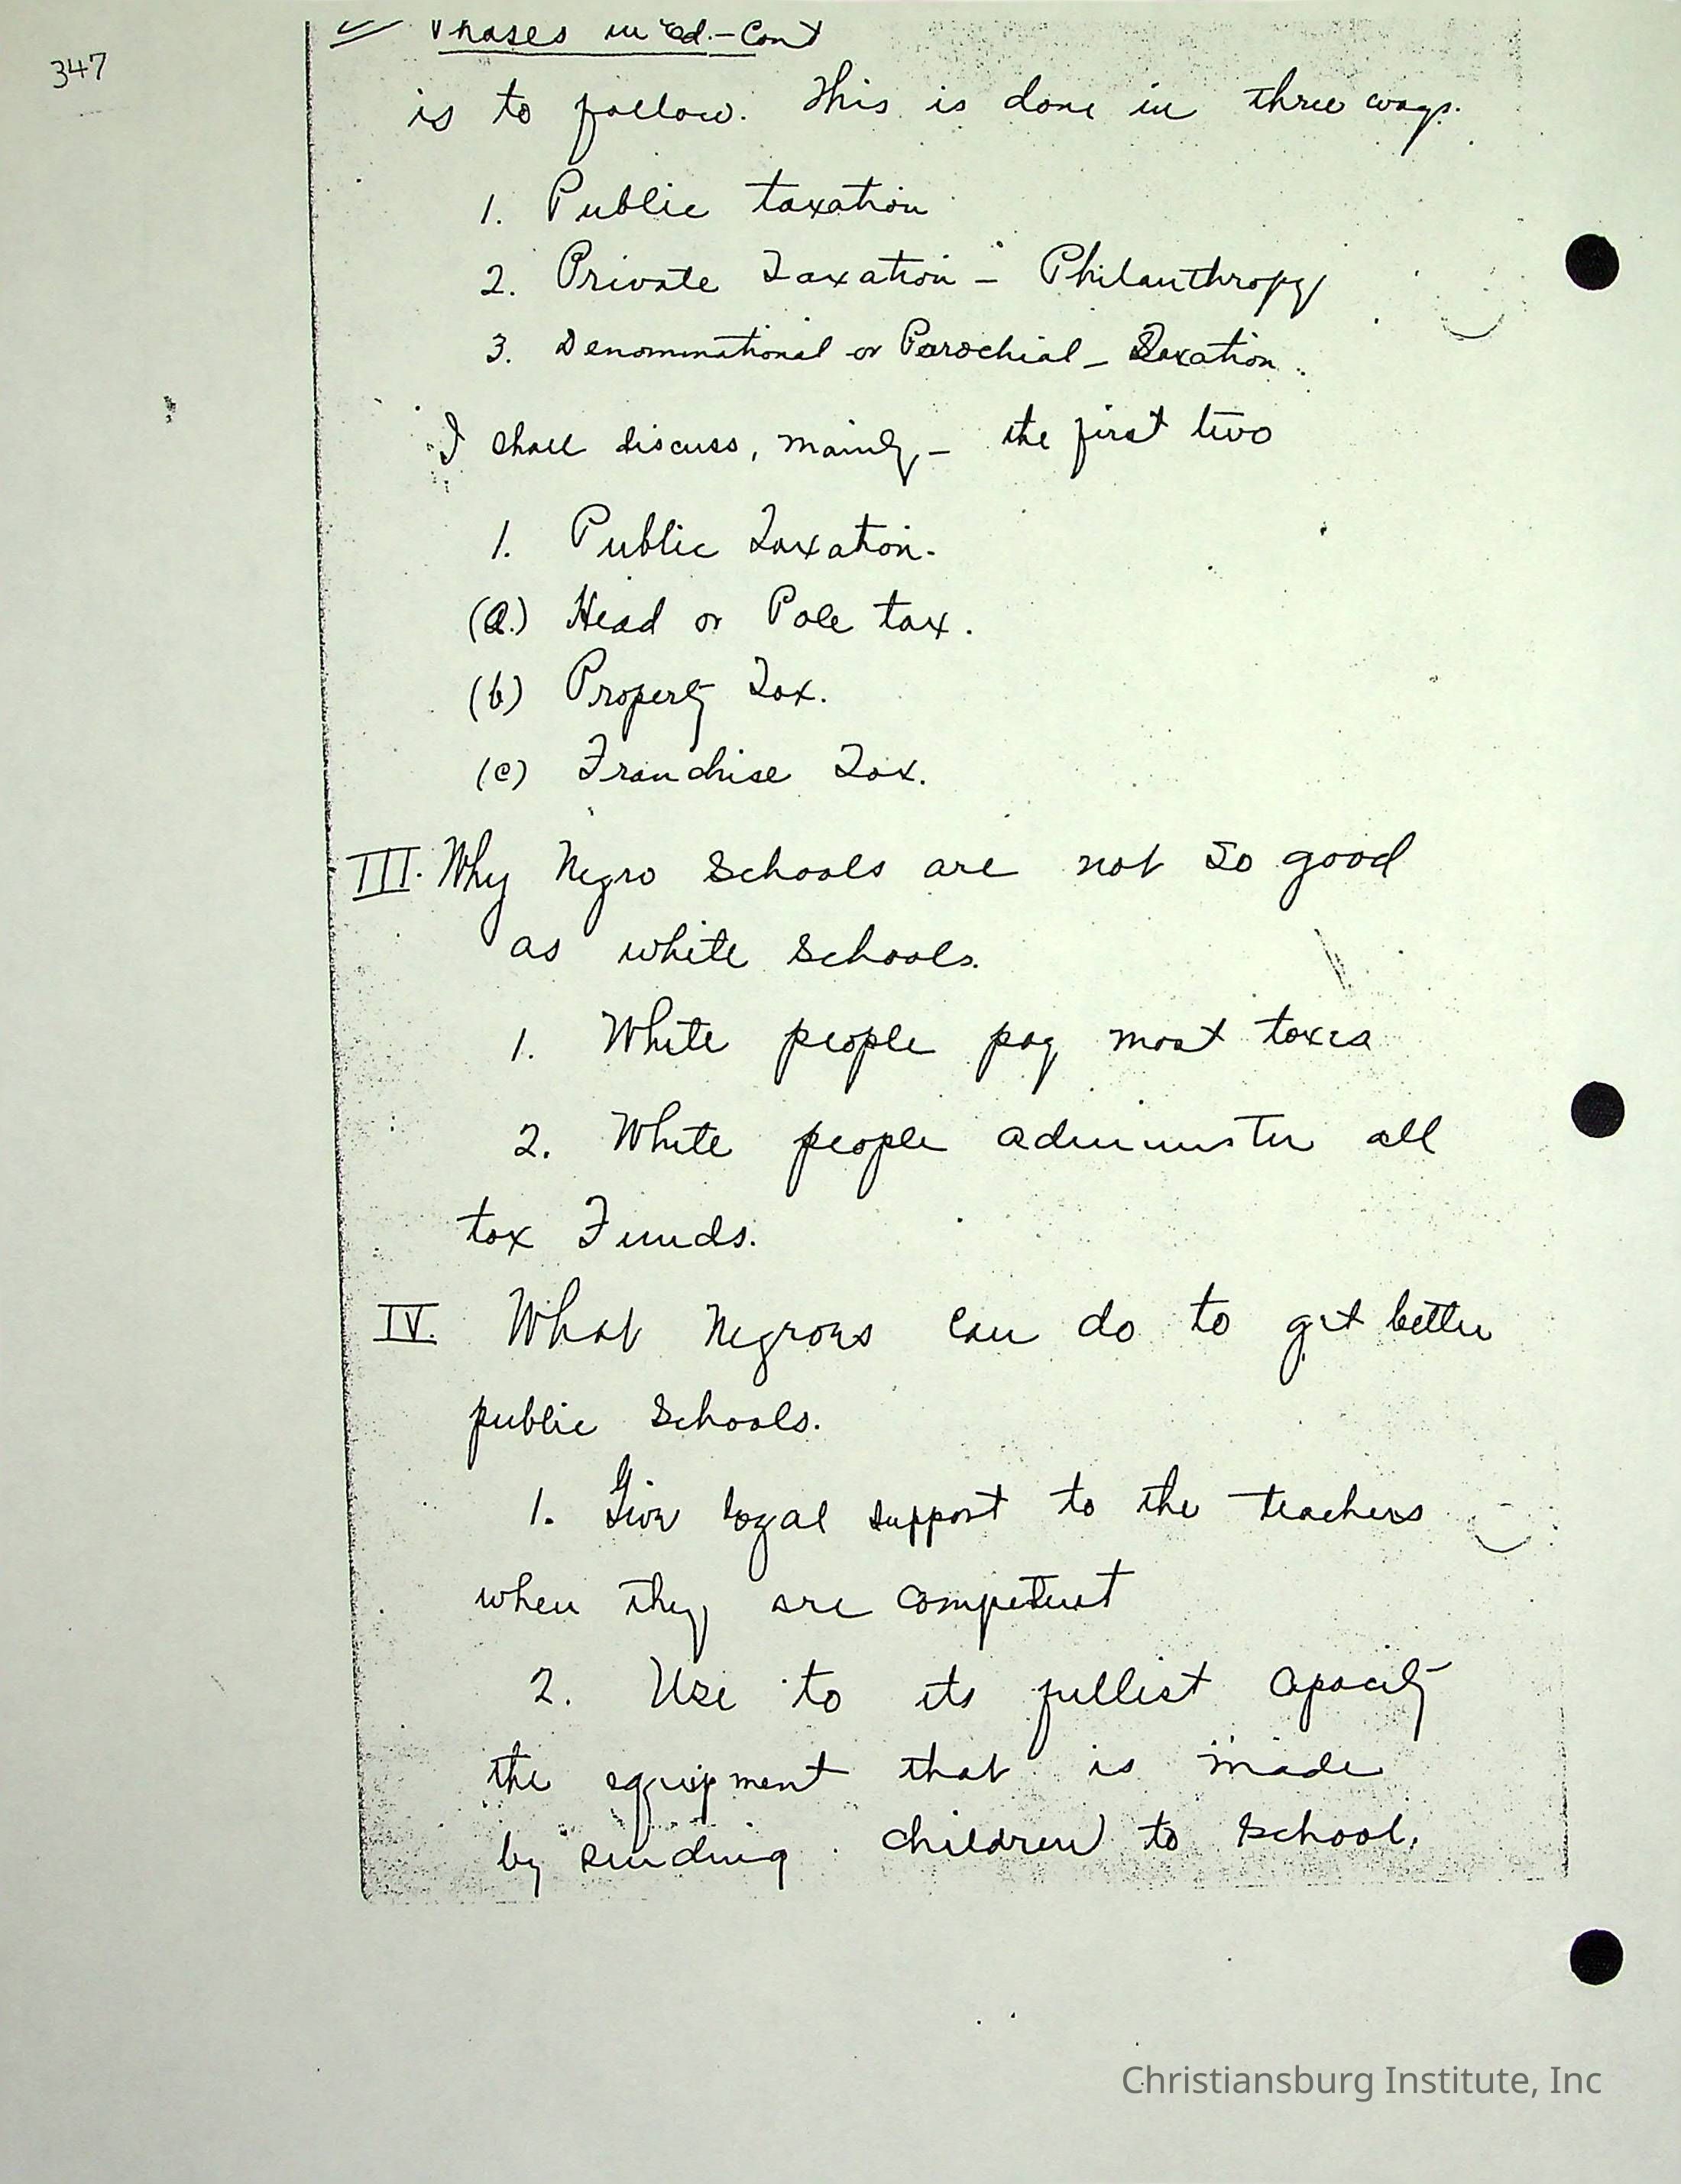 347
Phases in Ed.-Cont
is to follow. This is done in three ways.
1. Public taxation
2. Private Taxation - Philanthropy
3. Denominational or Parochial - Taxation.
I shall discuss, mainly - the first two
1. Public Taxation.
(a.) Head or Pole tax.
(b) Property Tax.
(c) Franchise Tax.
III. Why Negro Schools are not so good
as white schools.
1. White people pay most taxes
2. White people administer all
tax Funds.
IV. What Negroes can do to get better
public schools.
1. Give loyal support to the teachers
when they are competent
2. Use to its fullest capacity
the equipment that is made
by sending children to school.
Christiansburg Institute, Inc